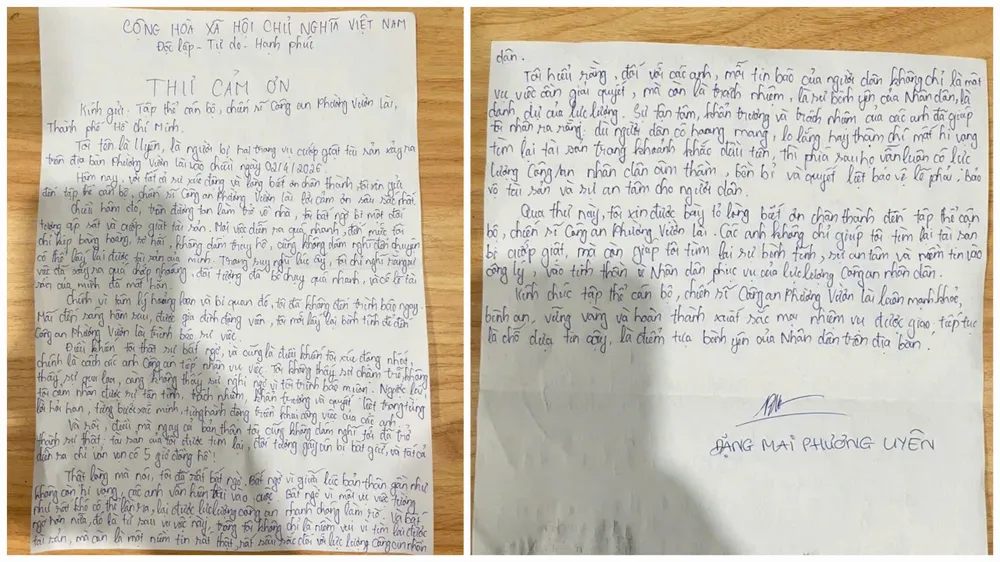 CỘNG HÒA XÃ HỘI CHỦ NGHĨA VIỆT NAM
Độc lập - Tự do - Hạnh phúc
THƯ CẢM ƠN
Kính gửi: Tập thể cán bộ, chiến sĩ Công an Phường Vườn Lài,
Thành phố Hồ Chí Minh.
Tôi tên là Uyên, là người bị hại trong vụ cướp giật tài sản xảy ra
trên địa bàn Phường Vườn Lài vào chiều ngày 02/4/2026.
Hôm nay, với tất cả sự xúc động và lòng biết ơn chân thành, tôi xin gửi
đến tập thể cán bộ, chiến sĩ Công an Phường Vườn Lài lời cảm ơn sâu sắc nhất.
Chiều hôm đó, trên đường tan làm trở về nhà, tôi bất ngờ bị một đối
tượng áp sát và cướp giật tài sản. Mọi việc diễn ra quá nhanh, đến mức tôi
chỉ kịp bàng hoàng, sợ hãi, không dám truy hô, cũng không dám nghĩ đến chuyện
có thể lấy lại được tài sản của mình. Trong suy nghĩ lúc ấy, tôi chỉ nghĩ rằng sự
việc đã xảy ra quá chớp nhoáng, đối tượng đã bỏ chạy quá nhanh, và có lẽ tài
sản của mình đã mất hẳn.
Chính vì tâm lý hoang mang và bi quan đó, tôi đã không đến trình báo ngay.
Mãi đến sáng hôm sau, được gia đình động viên, tôi mới lấy lại bình tĩnh để đến
Công an Phường Vườn Lài trình báo sự việc.
Điều khiến tôi thật sự bất ngờ, và cũng là điều khiến tôi xúc động nhất,
chính là cách các anh Công an tiếp nhận vụ việc. Tôi không thấy sự chậm trễ, không
thấy sự qua loa, càng không thấy sự nghi ngờ vì tôi trình báo muộn. Ngược lại,
tôi cảm nhận được sự tận tình, trách nhiệm, khẩn trương và quyết liệt trong từng
lời hỏi han, từng bước xác minh, từng hành động triển khai công việc của các anh.
Và rồi, điều mà ngay cả bản thân tôi cũng không dám nghĩ tới đã trở
thành sự thật: tài sản của tôi được tìm lại, đối tượng gây án bị bắt giữ, và tất cả
diễn ra chỉ vỏn vẹn có 5 giờ đồng hồ!
Thật lòng mà nói, tôi đã rất bất ngờ. Bất ngờ vì giữa lúc bản thân gần như
không còn hi vọng, các anh vẫn kiên trì vào cuộc. Bất ngờ vì một vụ việc tưởng
như rất khó có thể lần ra, lại được lực lượng công an nhanh chóng làm rõ. Và bất
ngờ hơn nữa, đó là từ sau vụ việc này, trong tôi không chỉ là niềm vui vì tìm lại được
tài sản, mà còn là một niềm tin rất thật, rất sâu sắc đối với lực lượng Công an nhân
dân.
Tôi hiểu rằng, đối với các anh, mỗi tin báo của người dân không chỉ là một
vụ việc cần giải quyết, mà còn là trách nhiệm, là sự bình yên của Nhân dân, là
danh dự của lực lượng. Sự tận tâm, khẩn trương và trách nhiệm của các anh đã giúp
tôi nhận ra rằng: dù người dân có hoang mang, lo lắng hay thậm chí mất hi vọng
tìm lại tài sản trong khoảnh khắc đầu tiên, thì phía sau họ vẫn luôn có lực
lượng Công an nhân dân âm thầm, bền bỉ và quyết liệt bảo vệ lẽ phải, bảo
vệ tài sản và sự an tâm cho người dân.
Qua thư này, tôi xin được bày tỏ lòng biết ơn chân thành đến tập thể cán
bộ, chiến sĩ Công an Phường Vườn Lài. Các anh không chỉ giúp tôi tìm lại tài sản
bị cướp giật, mà còn giúp tôi tìm lại sự bình tĩnh, sự an tâm và niềm tin vào
công lý, vào tinh thần vì Nhân dân phục vụ của lực lượng Công an nhân dân.
Kính chúc tập thể cán bộ, chiến sĩ Công an Phường Vườn Lài luôn mạnh khỏe,
bình an, vững vàng và hoàn thành xuất sắc mọi nhiệm vụ được giao, tiếp tục
là chỗ dựa tin cậy, là điểm tựa bình yên của Nhân dân trên địa bàn.
ĐẶNG MAI PHƯƠNG UYÊN